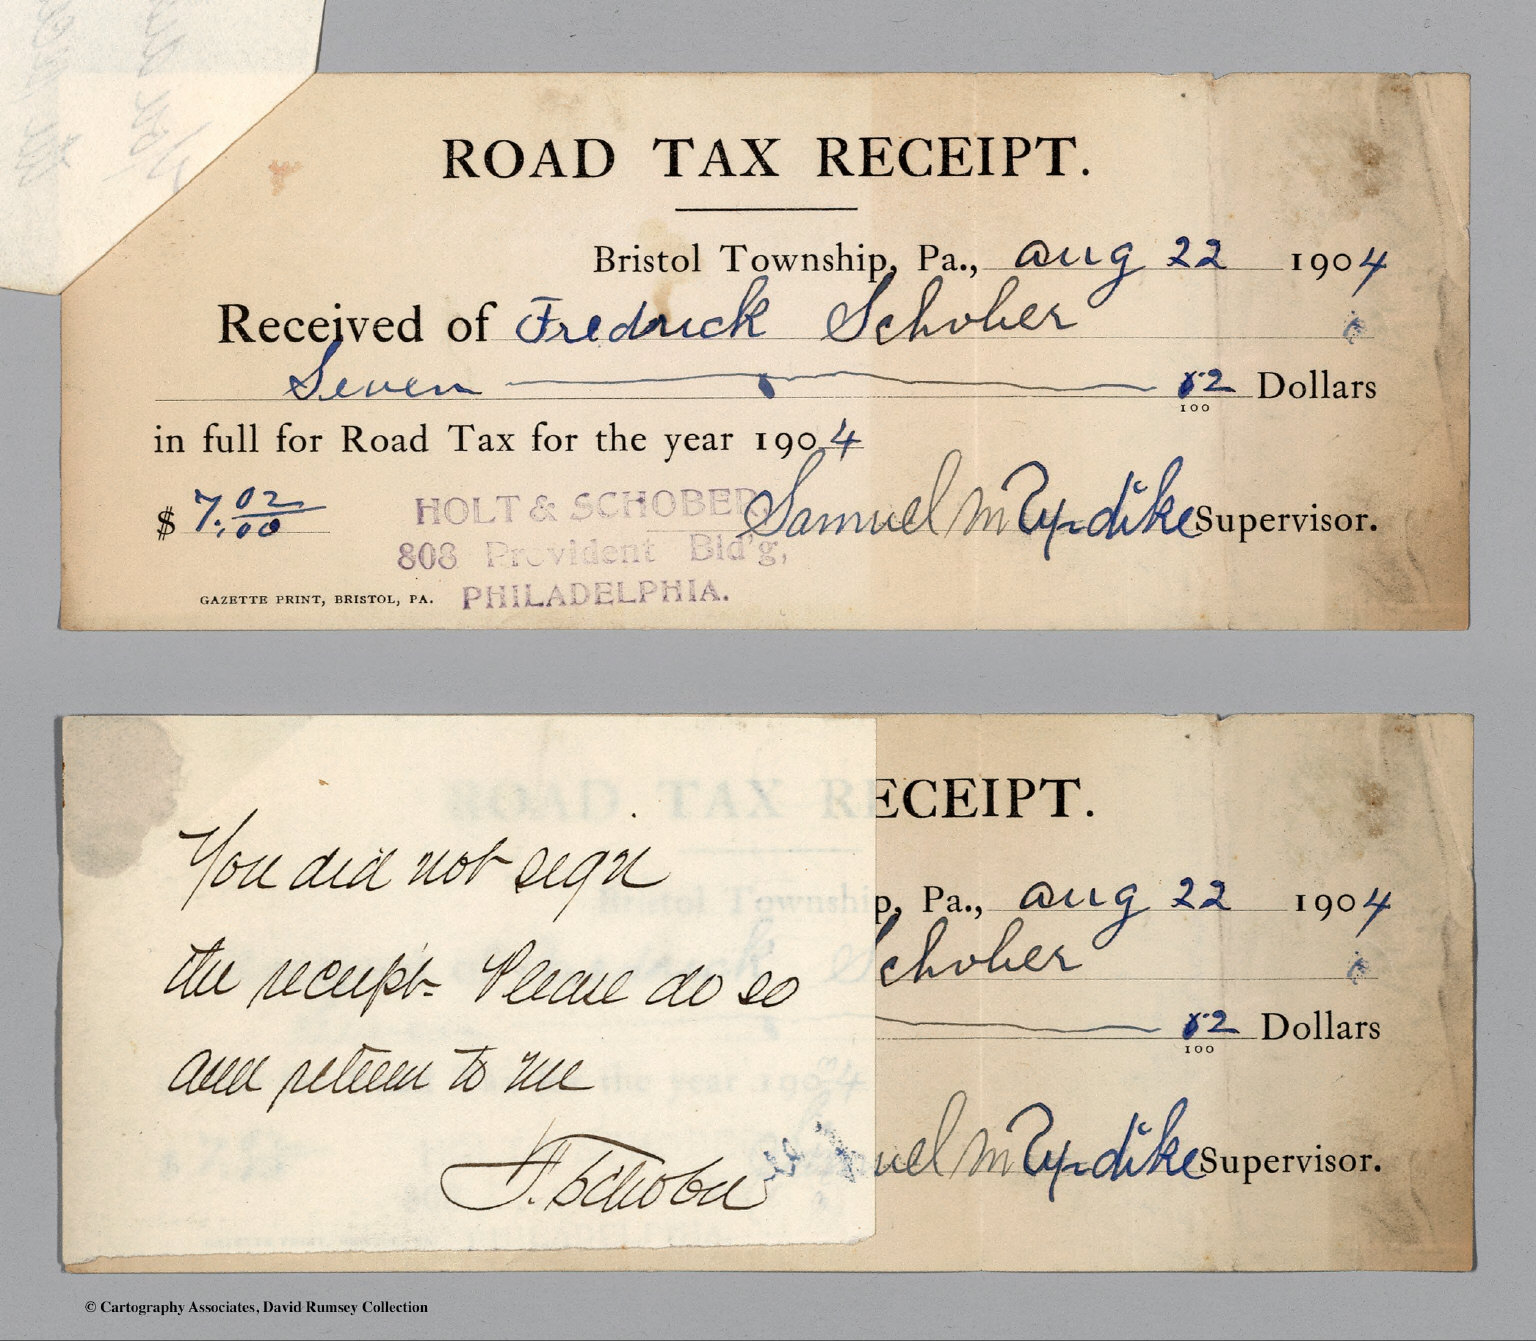 ROAD TAX RECEIPT.
Bristol Township, Pa., Aug 22 1904
Received of Fredrick Schober
Seven 02/100 Dollars
in full for Road Tax for the year 1904
$ 7.02/00 Samuel M Updike Supervisor.
HOLT & SCHOBER,
808 Provident Bld'g,
PHILADELPHIA.
GAZETTE PRINT, BRISTOL, PA.
You did not sign
the receipt. Please do so
and return to me
F. Schober
ROAD TAX RECEIPT.
Bristol Township, Pa., Aug 22 1904
Schober
02/100 Dollars
the year 1904
uel M Updike Supervisor.
© Cartography Associates, David Rumsey Collection